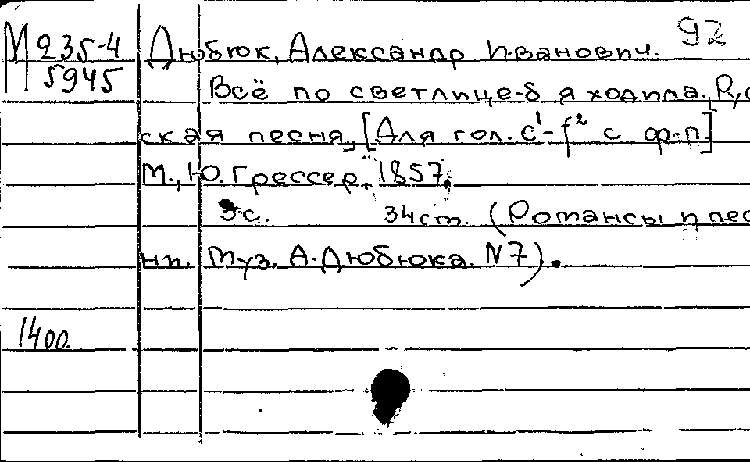 М 235-4 Дюбюк, Александр Иванович. 92
5945
Всё по светлице-б я ходила. Рус
ская песня, [Для гол. c¹-f² с ф-п.]
М., Ю. Грессер, 1857.
3с. 34ст. (Романсы и пес
ни. Муз. А. Дюбюка. N7).
1400